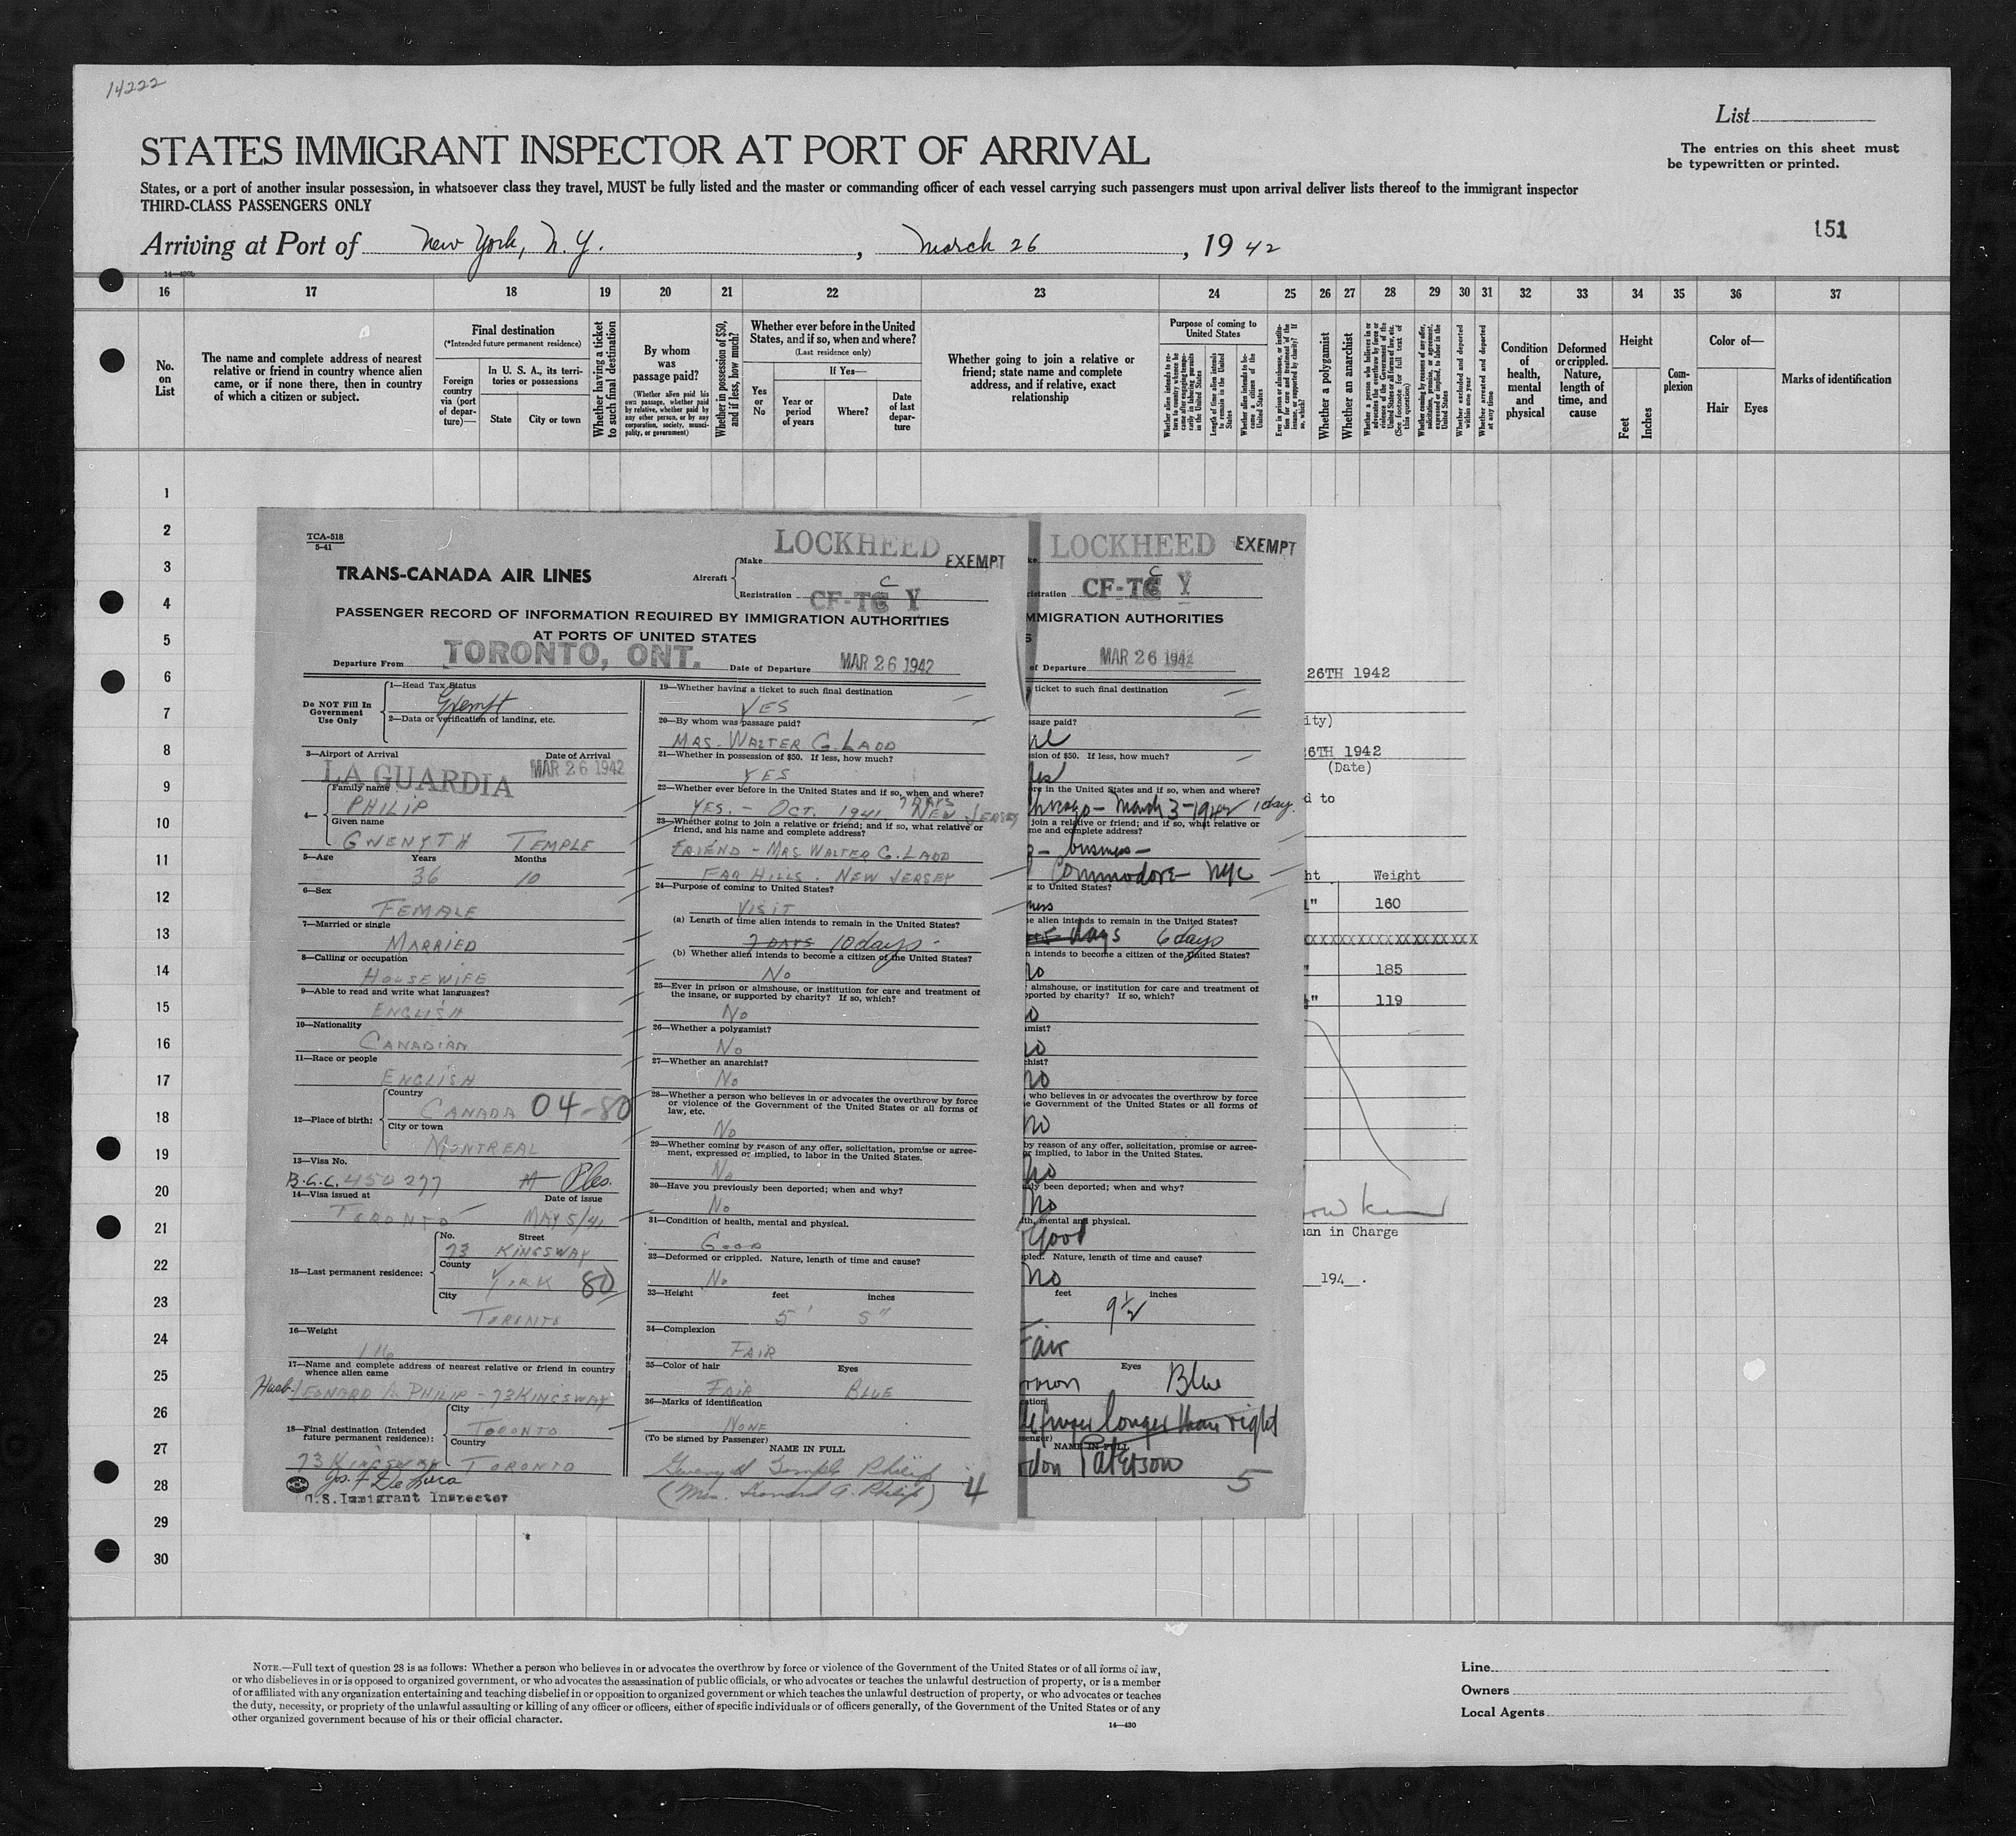 14222
List
STATES IMMIGRANT INSPECTOR AT PORT OF ARRIVAL
The entries on this sheet must
be typewritten or printed.
States, or a port of another insular possession, in whatsoever class they travel, MUST be fully listed and the master or commanding officer of each vessel carrying such passengers must upon arrival deliver lists thereof to the immigrant inspector
THIRD-CLASS PASSENGERS ONLY
151
Arriving at Port of New York, N.Y., March 26, 1942
16 17 18 19 20 21 22 23 24 25 26 27 28 29 30 31 32 33 34 35 36 37
No. on List
The name and complete address of nearest
relative or friend in country whence alien
came, or if none there, then in country
of which a citizen or subject.
Final destination
(*Intended future permanent residence)
Foreign country via (port of departure)—
In U. S. A., its territories or possessions
State
City or town
Whether having a ticket to such final destination
By whom was passage paid?
(Whether alien paid his own passage, whether paid by relative, whether paid by any other person, or by any corporation, society, municipality, or government)
Whether in possession of $50, and if less, how much?
Whether ever before in the United
States, and if so, when and where?
(Last residence only)
Yes or No
If Yes—
Year or period of years
Where?
Date of last departure
Whether going to join a relative or
friend; state name and complete
address, and if relative, exact
relationship
Purpose of coming to
United States
Whether a polygamist
Whether an anarchist
Condition of health, mental and physical
Deformed or crippled. Nature, length of time, and cause
Height
Feet
Inches
Complexion
Color of—
Hair
Eyes
Marks of identification
1
2
3
4
5
6
7
8
9
10
11
12
13
14
15
16
17
18
19
20
21
22
23
24
25
26
27
28
29
30
TCA-518
5-41
TRANS-CANADA AIR LINES
Aircraft
Make LOCKHEED
EXEMPT
Registration CF-TC Y
PASSENGER RECORD OF INFORMATION REQUIRED BY IMMIGRATION AUTHORITIES
AT PORTS OF UNITED STATES
Departure From TORONTO, ONT. Date of Departure MAR 26 1942
Do NOT Fill In
Government
Use Only
1—Head Tax Status
Exempt
2—Data or verification of landing, etc.
3—Airport of Arrival Date of Arrival
LA GUARDIA MAR 26 1942
4—
Family name
PHILIP
Given name
GWENYTH TEMPLE
5—Age Years Months
36 10
6—Sex
FEMALE
7—Married or single
MARRIED
8—Calling or occupation
HOUSEWIFE
9—Able to read and write what languages?
ENGLISH
10—Nationality
CANADIAN
11—Race or people
ENGLISH
12—Place of birth:
Country
CANADA 04-80
City or town
MONTREAL
13—Visa No.
B.C.C. 450277
14—Visa issued at Date of issue
TORONTO MAY 5/41
15—Last permanent residence:
No. Street
73 KINGSWAY
County
YORK 80
City
TORONTO
16—Weight
116
17—Name and complete address of nearest relative or friend in country
whence alien came
Husb. LEONARD A. PHILIP - 73 KINGSWAY
18—Final destination (Intended
future permanent residence):
City
TORONTO
Country
73 KINGSWAY TORONTO
U.S. Immigrant Inspector
19—Whether having a ticket to such final destination
YES
20—By whom was passage paid?
MRS. WALTER G. LADD
21—Whether in possession of $50. If less, how much?
YES
22—Whether ever before in the United States and if so, when and where?
YES. - OCT. 1941. 7 DAYS NEW JERSEY
23—Whether going to join a relative or friend; and if so, what relative or
friend, and his name and complete address?
FRIEND - MRS WALTER G. LADD
FAR HILLS. NEW JERSEY
24—Purpose of coming to United States?
VISIT
(a) Length of time alien intends to remain in the United States?
7 DAYS 10 days
(b) Whether alien intends to become a citizen of the United States?
NO
25—Ever in prison or almshouse, or institution for care and treatment of
the insane, or supported by charity? If so, which?
NO
26—Whether a polygamist?
NO
27—Whether an anarchist?
NO
28—Whether a person who believes in or advocates the overthrow by force
or violence of the Government of the United States or all forms of
law, etc.
NO
29—Whether coming by reason of any offer, solicitation, promise or agree-
ment, expressed or implied, to labor in the United States.
NO
30—Have you previously been deported; when and why?
NO
31—Condition of health, mental and physical.
GOOD
32—Deformed or crippled. Nature, length of time and cause?
NO
33—Height feet inches
5' 5"
34—Complexion
FAIR
35—Color of hair Eyes
FAIR BLUE
36—Marks of identification
NONE
(To be signed by Passenger)
NAME IN FULL
Gwenyth Temple Philip
(Mrs. Leonard A. Philip) 4
LOCKHEED EXEMPT
istration CF-TC Y
MMIGRATION AUTHORITIES
of Departure MAR 26 1942
ticket to such final destination
sage paid?
sion of $50. If less, how much?
re in the United States and if so, when and where?
Chicago - March 3 - 1942 1 day.
join a relative or friend; and if so, what relative or
me and complete address?
business -
Commodore - NYC
g to United States?
ness
e alien intends to remain in the United States?
days 6 days
n intends to become a citizen of the United States?
no
almshouse, or institution for care and treatment of
pported by charity? If so, which?
no
mist?
no
chist?
no
who believes in or advocates the overthrow by force
e Government of the United States or all forms of
no
by reason of any offer, solicitation, promise or agree-
or implied, to labor in the United States.
no
ly been deported; when and why?
no
lth, mental and physical.
Good
pled. Nature, length of time and cause?
no
feet inches
9½
Fair
Eyes
Blue
longer than right
NAME IN FULL
don Paterson
5
26TH 1942
ity)
26TH 1942
(Date)
d to
ht Weight
160
XXXXXXXXXXXXXXXXXXXXX
185
119
an in Charge
194 .
NOTE.—Full text of question 28 is as follows: Whether a person who believes in or advocates the overthrow by force or violence of the Government of the United States or of all forms of law,
or who disbelieves in or is opposed to organized government, or who advocates the assassination of public officials, or who advocates or teaches the unlawful destruction of property, or is a member
of or affiliated with any organization entertaining and teaching disbelief in or opposition to organized government or which teaches the unlawful destruction of property, or who advocates or teaches
the duty, necessity, or propriety of the unlawful assaulting or killing of any officer or officers, either of specific individuals or of officers generally, of the Government of the United States or of any
other organized government because of his or their official character.
14—430
Line
Owners
Local Agents